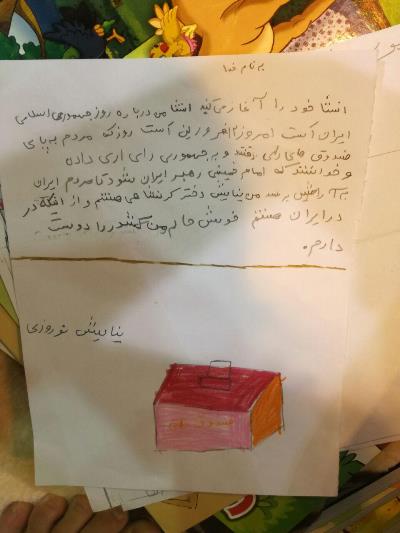 به نام خدا
انشا خود را آغاز می کنید انشا من درباره روز جمهوری اسلامی
ایران است امروز ۱۲ فرورین است روز که مردم به پای
صندوق های رای رفتند و به جمهوری رای اری دادن
و خداستند که امام خمینی رهبر ایران بشود تا مردم ایران
به آ برسد من نیایش دختر کرمنشا هی هستم و از اینکه در
در ایران هستم خوش حالم من کشورم را دوست
دارم.
نیایش نوروزی
صندوق رای